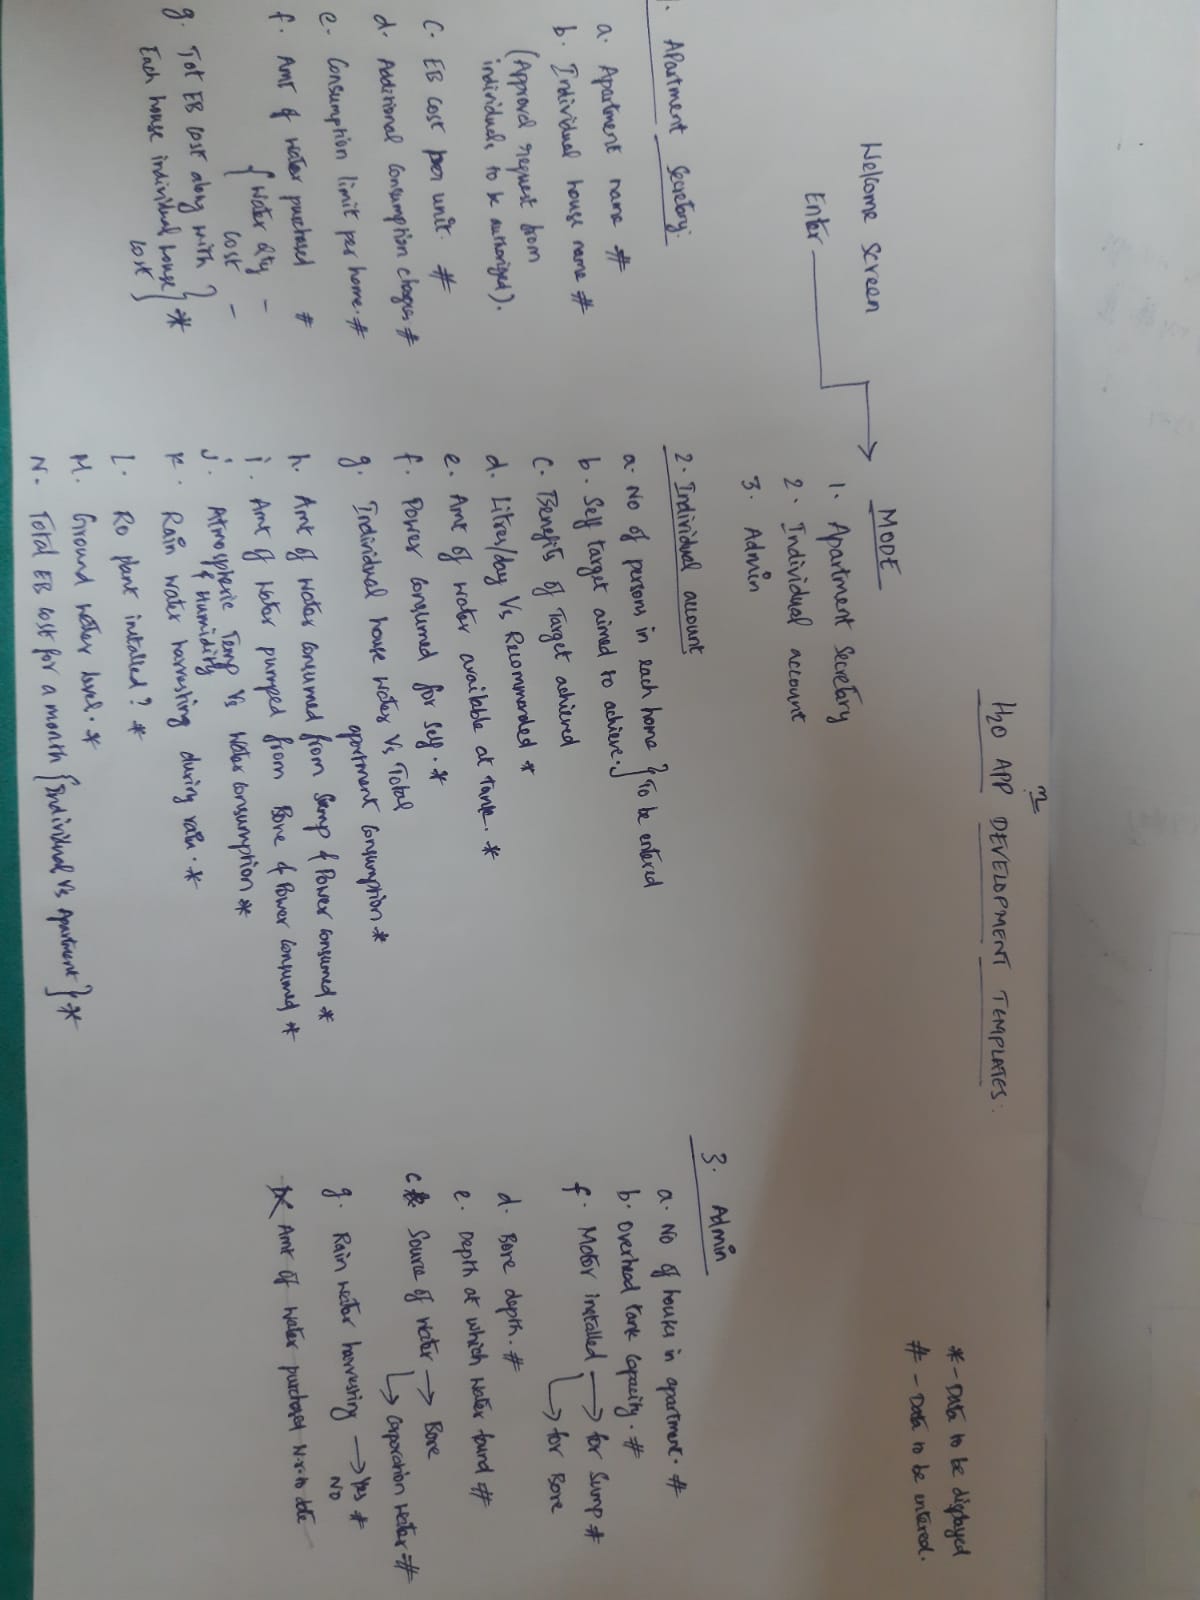 H2O APP DEVELOPMENT TEMPLATES:
* - Data to be displayed
# - Data to be entered.
Welcome Screen
Enter
MODE
1. Apartment Secretary
2. Individual account
3. Admin
1. Apartment Secretary:
a. Apartment name #
b. Individual house name #
(Approval request from
individuals to be authorized).
c. EB cost per unit. #
d. Additional consumption charges #
e. Consumption limit per home. #
f. Amt of water purchased #
{ Water Qty -
cost -
g. Tot EB cost along with }
Each house individual house } *
cost }
2. Individual account
a. No of persons in each home } To be entered
b. Self target aimed to achieve. }
c. Benefits of Target achieved
d. Litres/day Vs Recommended *
e. Amt of water available at tank. *
f. Power consumed for self. *
g. Individual house water Vs Total
apartment consumption *
h. Amt of water consumed from Sump & Power consumed *
i. Amt of water pumped from Bore & Power consumed *
j. Atmospheric Temp Vs Water consumption *
& Humidity
k. Rain water harvesting during rain. *
L. RO plant installed? *
M. Ground water level. *
N. Total EB cost for a month { Individual Vs Apartment } *
3. Admin
a. No of houses in apartment. #
b. Overhead tank capacity. #
f. Motor installed → for Sump #
↳ for Bore
d. Bore depth. #
e. Depth at which water found #
c. Source of water → Bore
↳ Corporation water #
g. Rain water harvesting → Yes #
NO
Amt of water purchased w.r.to date